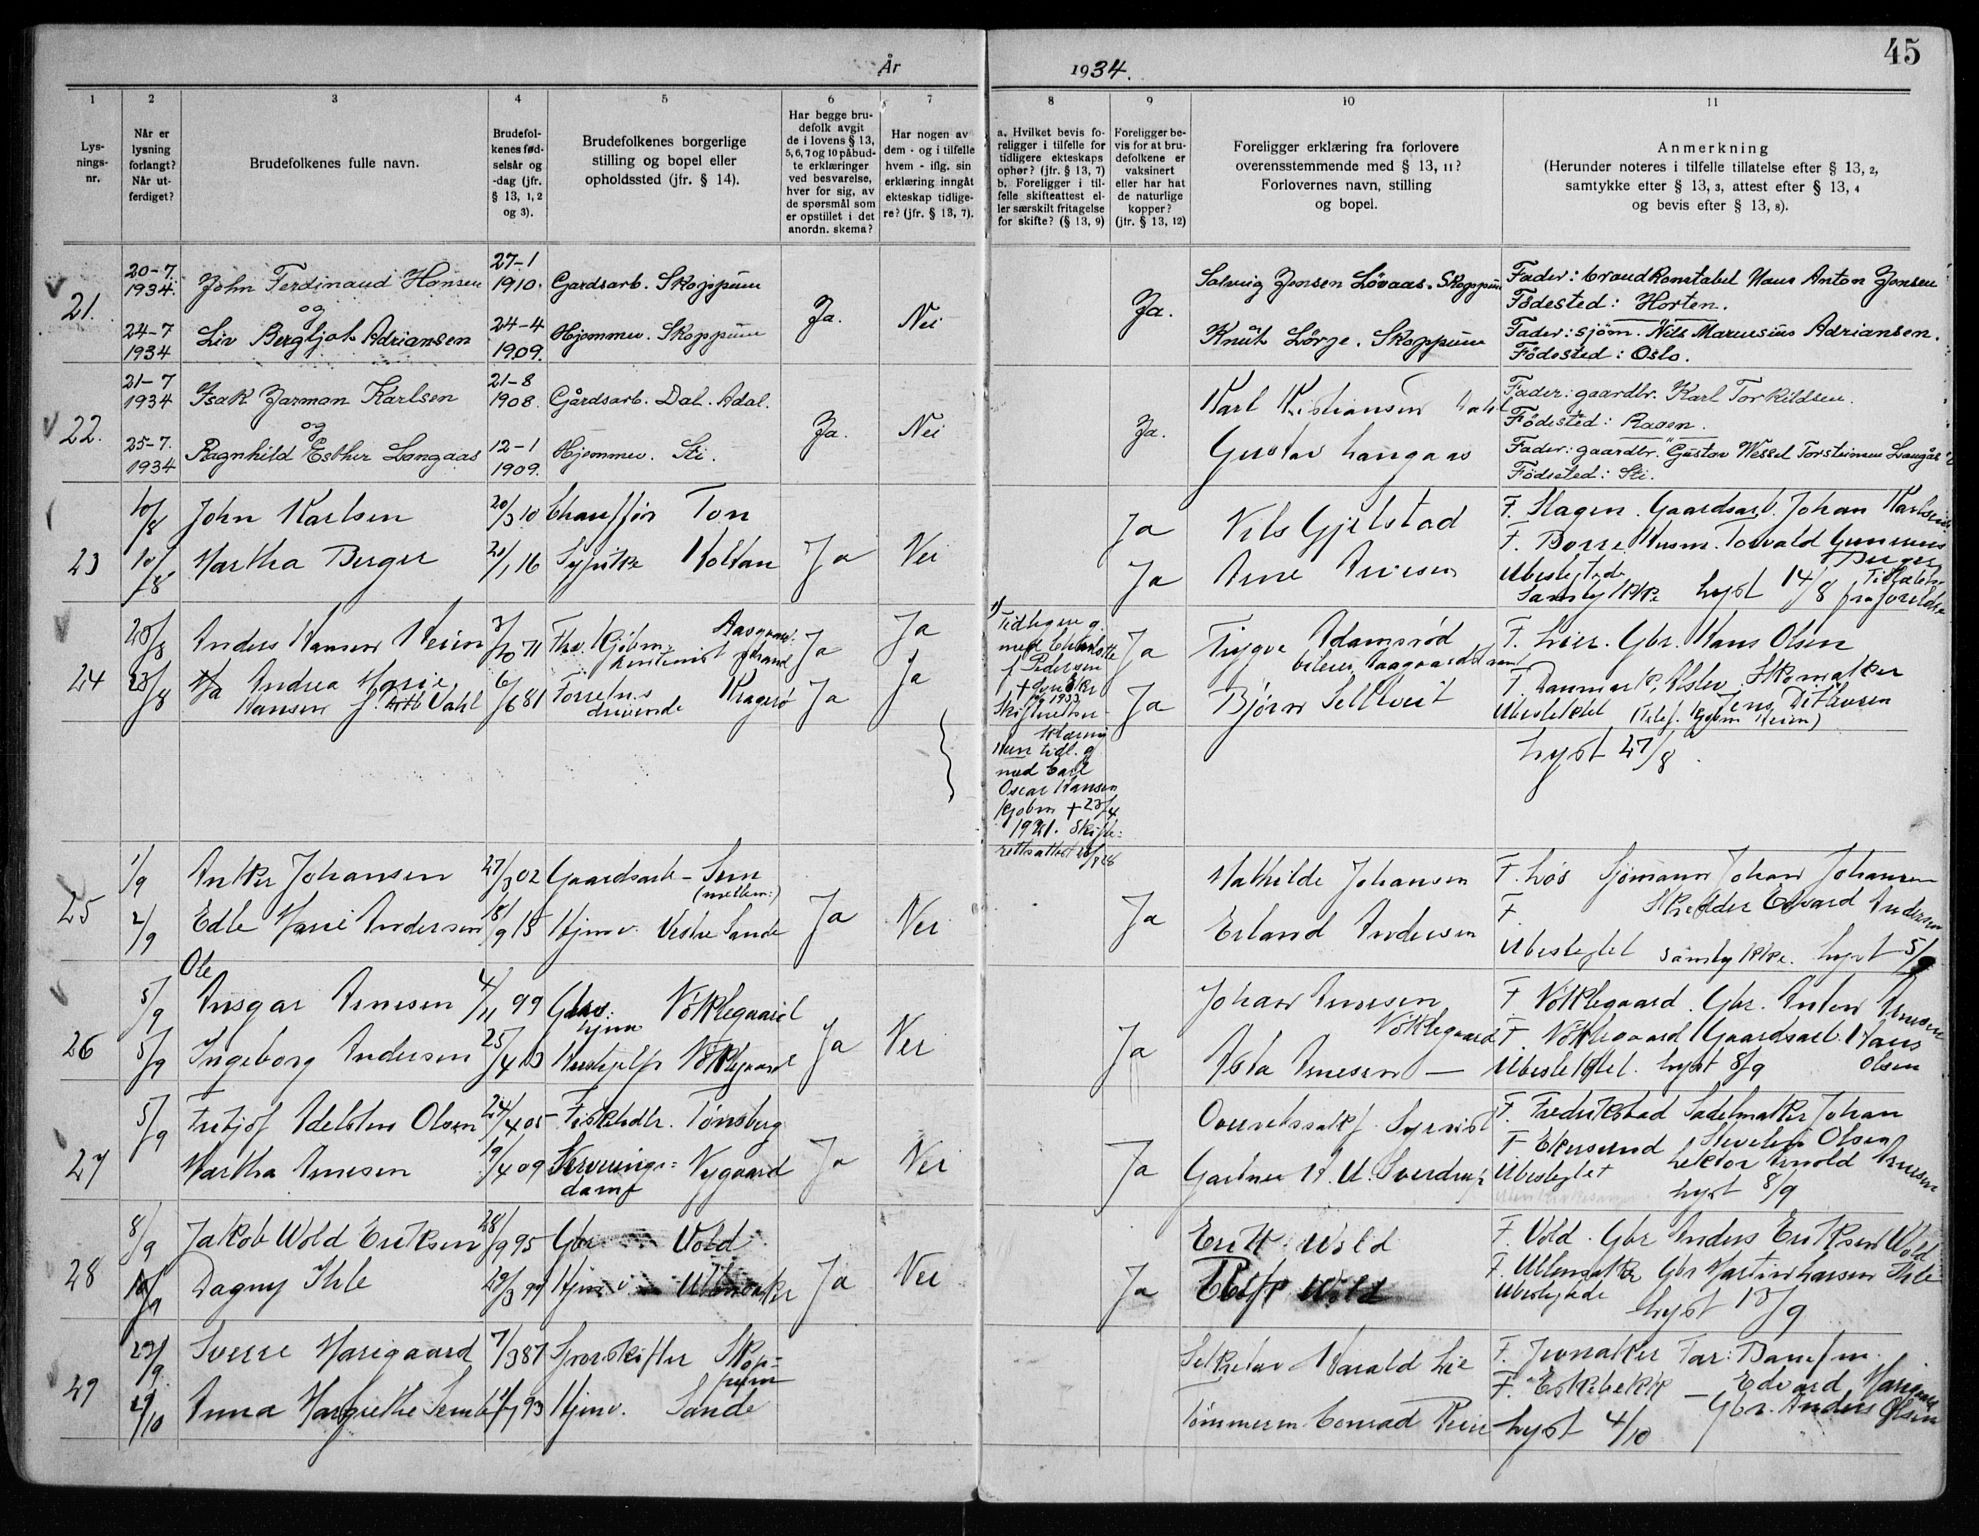 45
År 1934.
1 2 3 4 5 6 7 8 9 10 11
Lysnings-nr.
Når er lysning forlangt? Når utferdiget?
Brudefolkenes fulle navn.
Brudefolkenes fødselsår og -dag (jfr. § 13, 1, 2 og 3).
Brudefolkenes borgerlige stilling og bopel eller opholdssted (jfr. § 14).
Har begge brudefolk avgit de i lovens § 13, 5, 6, 7 og 10 påbudte erklæringer ved besvarelse, hver for sig, av de spørsmål som er opstillet i det anordn. skema?
Har nogen av dem - og i tilfelle hvem - iflg. sin erklæring inngått ekteskap tidligere? (jfr. § 13, 7).
a. Hvilket bevis foreligger i tilfelle for tidligere ekteskaps ophør? (jfr. § 13, 7)
b. Foreligger i tilfelle skifteattest eller særskilt fritagelse for skifte? (§ 13, 9)
Foreligger bevis for at brudefolkene er vaksinert eller har hat de naturlige kopper? (jfr. § 13, 12)
Foreligger erklæring fra forlovere overensstemmende med § 13, 11? Forlovernes navn, stilling og bopel.
Anmerkning
(Herunder noteres i tilfelle tillatelse efter § 13, 2, samtykke efter § 13, 3, attest efter § 13, 4 og bevis efter § 13, 8).
21.
20-7. 1934. John Ferdinand Hansen 27-1 1910. Gardsarb. Skoppum
og
24-7 1934 Liv Bergljot Adriansen 24-4 1909. Hjemmev. Skoppum
Ja. Nei Ja.
Solveig Jensen Løvaas. Skoppum
Knut Lørge. Skoppum
Fader: brandkonstabel Hans Anton Jensen
Fødested: Horten.
Fader: sjøm. Nils Marensius Adriansen.
Fødested: Oslo.
22.
21-7 1934 Isak Jarman Karlsen 21-8 1908. Gårdsarb. Dal. Adal.
og
25-7. 1934 Ragnhild Esther Langaas 12-1 1909. Hjemmev. Sti.
Ja. Nei Ja.
Karl Kristiansen
Gustav Langaas
Fader: gaardbr. Karl Torkildsen.
Fødested: Ragen.
Fader: gaardbr. Gustav Wessel Torsteinsen Langås
Fødested: Sti.
23
10/8 John Karlsen 20/3 10 Chauffør Ton
10/8 Martha Berger 21/1 16 Sypike Holtan
Ja Nei
Ja Nils Gjelstad
Ja Arne Arnesen
F. Slagen. Gaardsarb. Johan Karlsen
F. Borre Husm. Torvald Gunerius Berger
Ubeslegtede
Samtykke Lyst 14/8 fra foreldre
24
23/8 Anders Hansen Heien 3/10 71 Fhv. Kjøbm. Aasgaardstrand
23/8 Andrea Marie Hansen f. Dahl 6/6 81 Forretn.drivende Kragerø
Ja Ja
Ja Ja
1) Tidligere g.
med Charlotte
f. Pedersen
1933
Hun tidl. g.
med Carl
Oscar Hansen
Kjøbm + 23/4
1921. Skifte-
rettsattest
Ja Trygve Adamsrød
Ja Bjørn Selltveit
F. Lier. Gbr. Hans Olsen
F. Danmark, Skomaker
Jens Dithlusen
Ubeslektet (Telef. Kjøbm Heien)
Lyst 27/8.
25
1/9 Anker Johansen 27/3 02 Gaardsarb - Sem
(mellem:)
2/9 Edle Marie Andersen 18/9 15 Hjemv. Vestre Sande
Ja Nei Ja
Mathilde Johansen
Erland Andersen
F. Løs Sjømann Johan Johansen
F. Skredder Edvard Andersen
Ubeslegtet samtykke. Lyst 5/9
26
Ole
5/9 Ansgar Arnesen 4/11 99 Nøklegaard
5/9 Ingeborg Andersen 25/4 Hushjelp Nøklegaard
Ja Nei Ja
Johan Arnesen Nøklegaard
Asta Arnesen —
F. Nøklegaard. Gbr. Anton Arnesen
F. Nøklegaard Gaardsarb. Hans Olsen
Ubeslektet. Lyst 8/9
27
5/9 Fritjof Adelsten Olsen 24/4 05 Fiskehdlr. Tønsberg
Martha Arnesen 19/4 09 Serverings= Nygaard
dame
Ja Nei Ja
Overrettssakf. Syrrist
Gartner H. U. Sverdrup
F. Fredrikstad Sadelmaker Johan
Olsen
F. Ekersund Lektor Arnold Arnesen
Ubeslegtet Lyst 8/9
28
8/9 Jakob Wold Eriksen 28/9 95 Gbr Vold
10/9 Dagny Ihle 29/3 99 Hjemv. Ullensaker
Ja Nei Ja
Erik Wold
Wold
F. Vold. Gbr Anders Eriksen Wold
F. Ullensaker Gbr Martin Larsen Ihle
Ubeslegtede Lyst 13/9
29
29/9 Sverre Marigaard 7/3 87 Sporskifter Skop-
pum
2/10 Anna Margrethe Semb 93 Hjemv. Sande
Sekretær Harald Lie
Tømmerm. Conrad
F. Jevnaker Far: Banefm.
Edvard Marigaard
F. Eskebekk — Gbr. Anders Olsen
Lyst 4/10